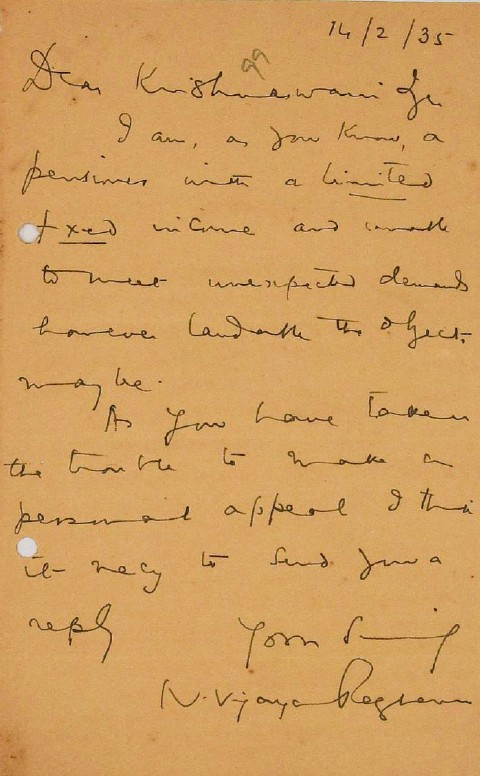 14/2/35
99
Dear Krishnaswami
I am, as you know, a
pensioner with a limited
fixed income and unable
to meet unexpected demands
however laudable the object
may be.
As you have taken
the trouble to make a
personal appeal I think
it necy to send you a
reply
Yours Sincerely
N. Vijaya Raghavan